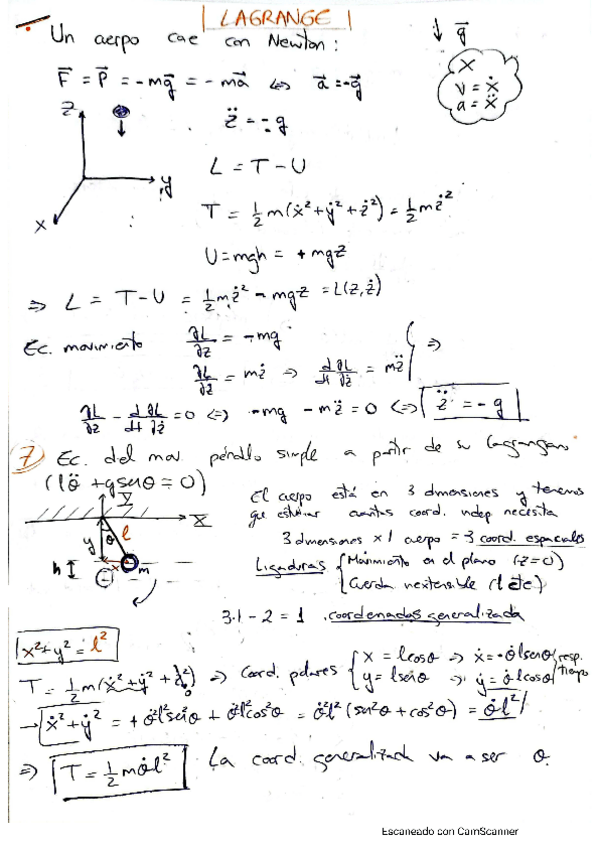 LAGRANGE
Un cuerpo cae con Newton:
↓ g⃗
F⃗ = P⃗ = -mg⃗ = -ma⃗ ⇔ a⃗ = -g⃗
x
v = ẋ
a = ẍ
z
y
x
z̈ = -g
L = T - U
T = ½ m(ẋ² + ẏ² + ż²) = ½ mż²
U = mgh = +mgz
⇒ L = T - U = ½ mż² - mgz = L(z, ż)
Ec. movimiento ∂L/∂z = -mg
∂L/∂ż = mż ⇒ d/dt ∂L/∂ż = mz̈ } ⇒
∂L/∂z - d/dt ∂L/∂ż = 0 ⇔ -mg - mz̈ = 0 ⇔ z̈ = -g
7) Ec. del mov péndulo simple a partir de su Lagrangiano
(lθ̈ + g senθ = 0)
Y
X
y θ l
x
h
m
El cuerpo está en 3 dimensiones y tenemos
que estudiar cuantas coord. indep necesita
3 dimensiones × 1 cuerpo = 3 coord. espaciales
Ligaduras { Movimiento en el plano (z=0)
Cuerda inextensible (l cte)
3·1 - 2 = 1 coordenadas generalizada
x² + y² = l²
T = ½ m(ẋ² + ẏ² + ż²) ⇒ Coord. polares { x = l cosθ ⇒ ẋ = -θ̇ l senθ
0
y = l senθ ⇒ ẏ = θ̇ l cosθ
resp.
tiempo
→ ẋ² + ẏ² = +θ̇² l² sen²θ + θ̇² l² cos²θ = θ̇² l² (sen²θ + cos²θ) = θ̇² l²
⇒ T = ½ mθ̇ l² La coord. generalizada va a ser θ.
Escaneado con CamScanner